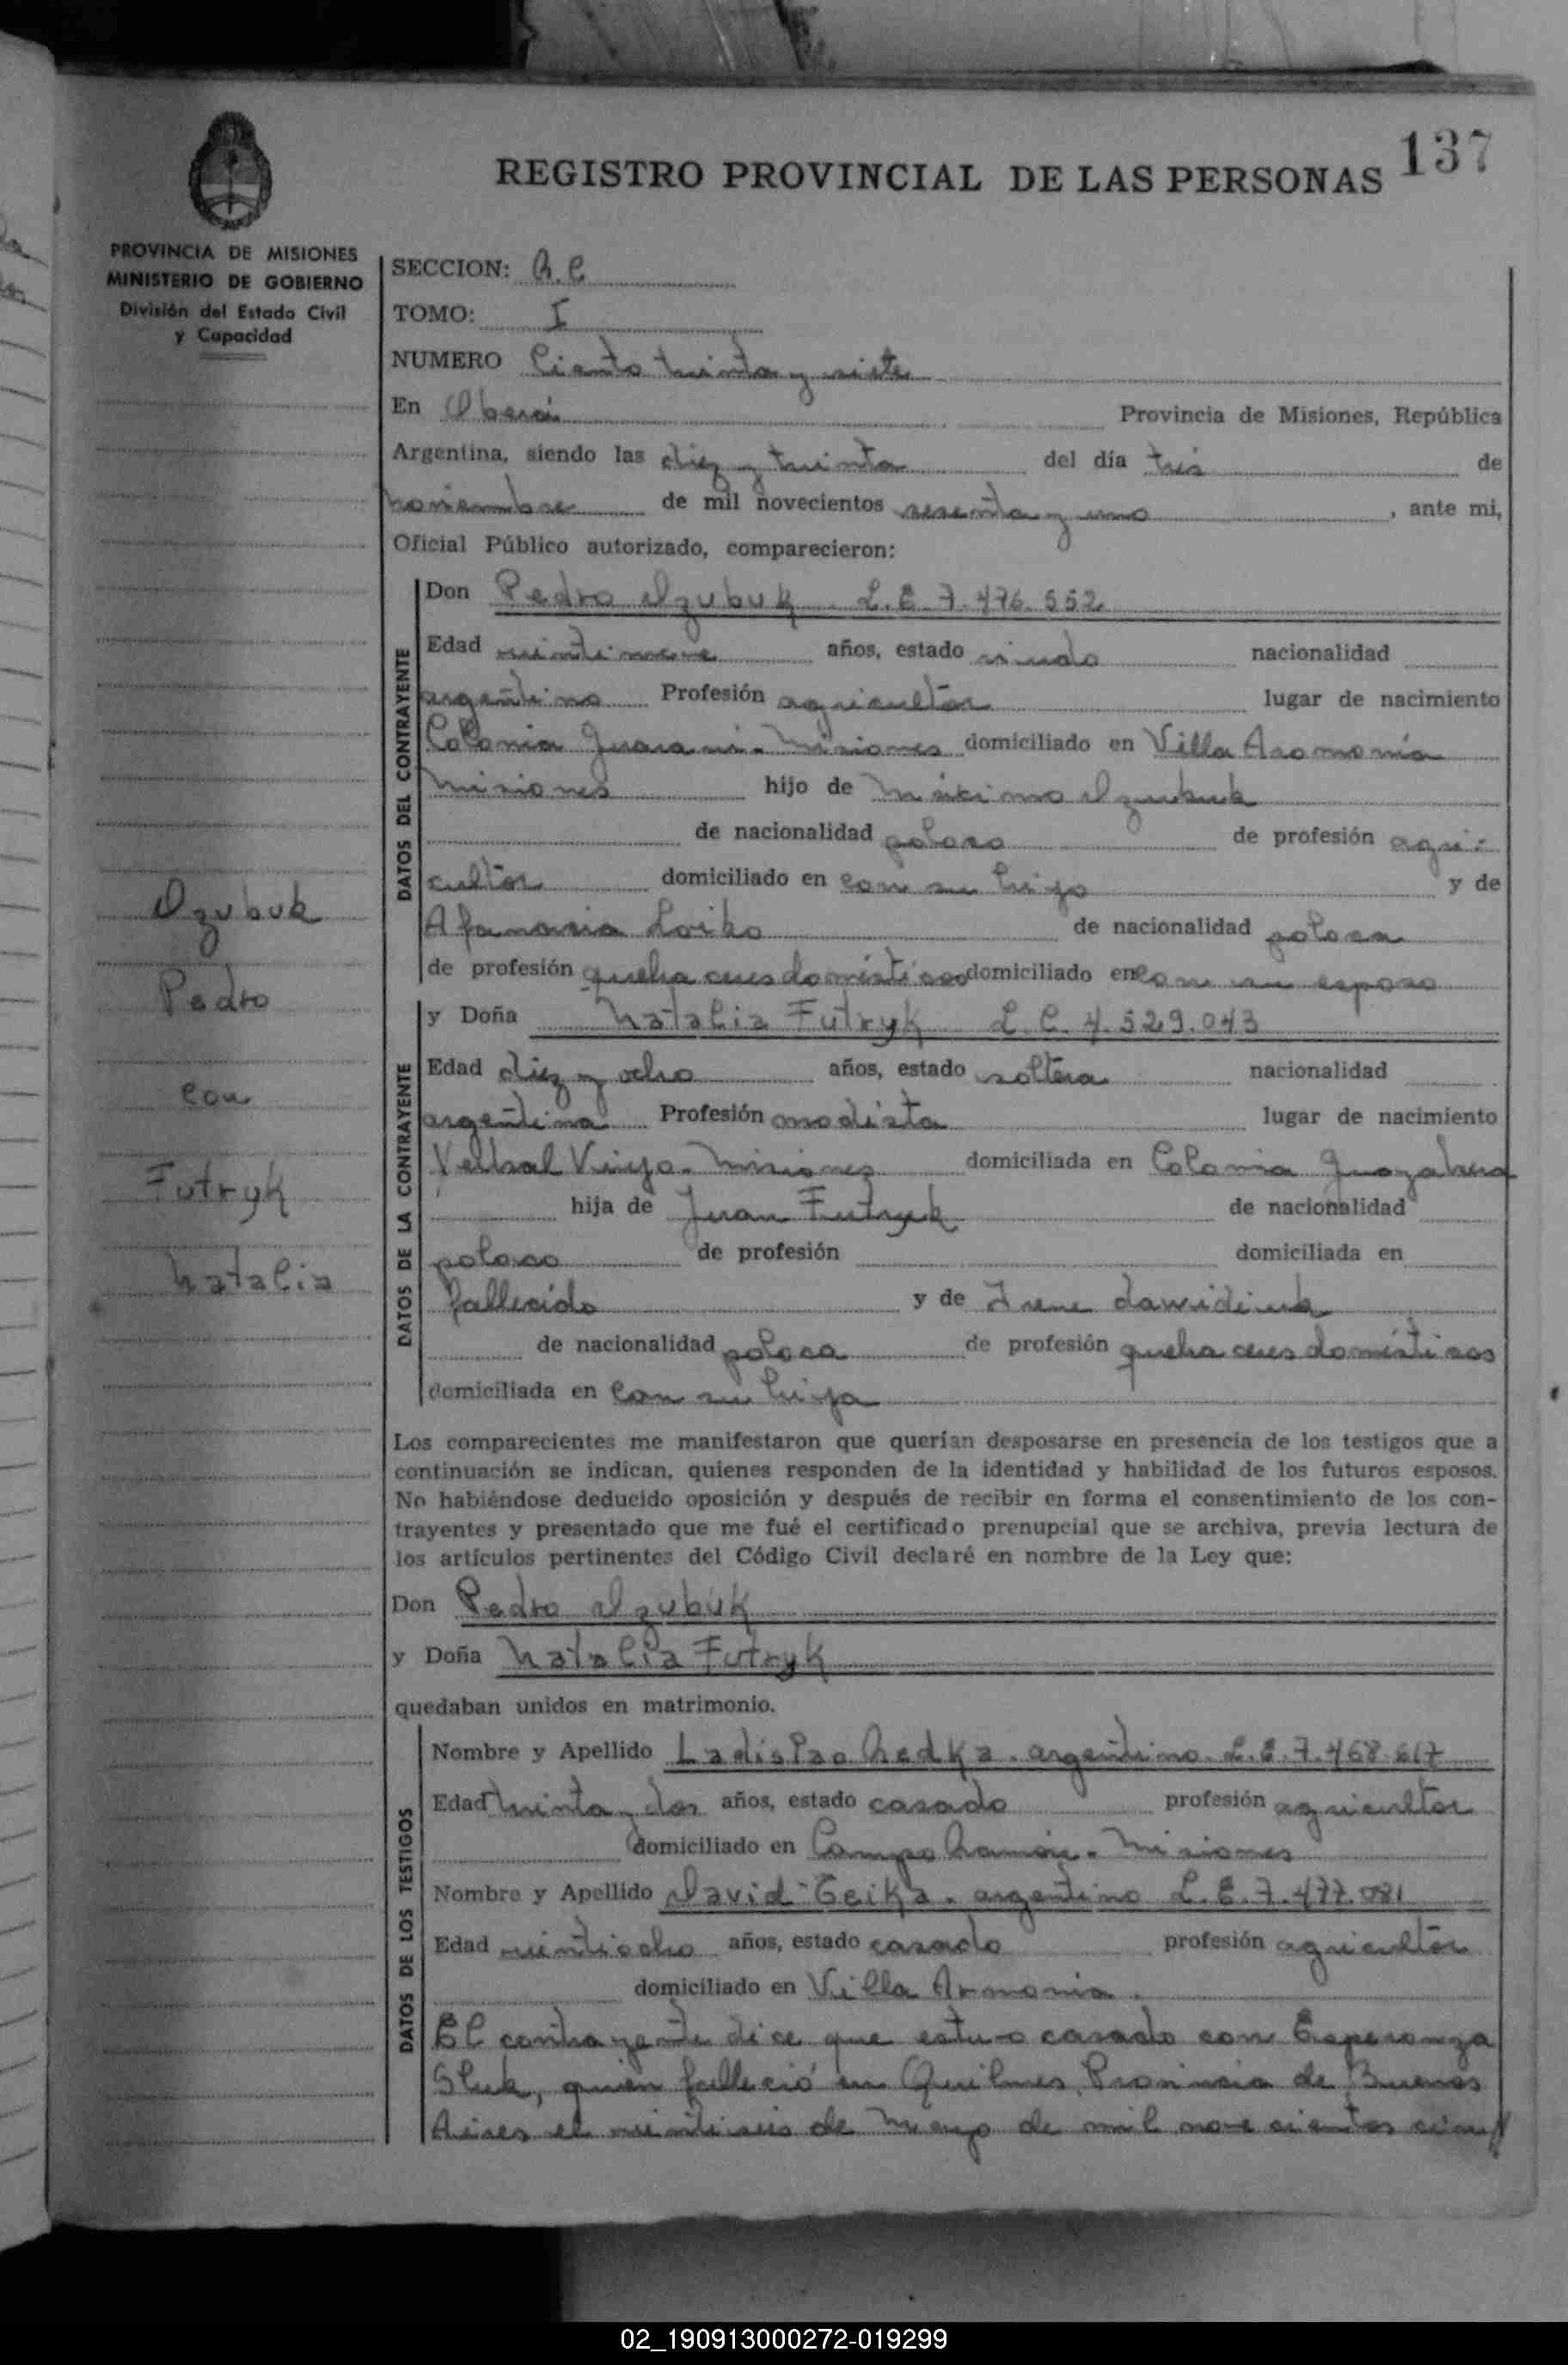 137
REGISTRO PROVINCIAL DE LAS PERSONAS
PROVINCIA DE MISIONES
MINISTERIO DE GOBIERNO
División del Estado Civil
y Capacidad
SECCION:
TOMO: I
NUMERO Ciento treinta y siete
En Oberá Provincia de Misiones, República
Argentina, siendo las diez y treinta del día tres de
noviembre de mil novecientos sesenta y uno, ante mi,
Oficial Público autorizado, comparecieron:
DATOS DEL CONTRAYENTE
Don Pedro Dzubuk L.E 7.476.552
Edad veintinueve años, estado viudo nacionalidad
argentino Profesión agricultor lugar de nacimiento
Colonia Guaraní - Misiones domiciliado en Villa Armonía
Misiones hijo de Máximo Dzubuk
de nacionalidad polaco de profesión agri-
cultor domiciliado en con su hijo y de
Afanasia Loiko de nacionalidad polaca
de profesión quehaceres domésticos domiciliado en con su esposo
DATOS DE LA CONTRAYENTE
y Doña Natalia Futryk L.C. 4.529.043
Edad diez y ocho años, estado soltera nacionalidad
argentina Profesión modista lugar de nacimiento
Yerbal Viejo - Misiones domiciliada en Colonia
hija de Juan Futryk de nacionalidad
polaco de profesión domiciliada en
fallecido y de Irene Dawidiuk
de nacionalidad polaca de profesión quehaceres domésticos
domiciliada en con su hija
Los comparecientes me manifestaron que querían desposarse en presencia de los testigos que a
continuación se indican, quienes responden de la identidad y habilidad de los futuros esposos.
No habiéndose deducido oposición y después de recibir en forma el consentimiento de los con-
trayentes y presentado que me fué el certificado prenupcial que se archiva, previa lectura de
los artículos pertinentes del Código Civil declaré en nombre de la Ley que:
Don Pedro Dzubuk
y Doña Natalia Futryk
quedaban unidos en matrimonio.
DATOS DE LOS TESTIGOS
Nombre y Apellido Ladislao Redka - argentino L.E.7.468.617
Edad treinta y dos años, estado casado profesión agricultor
domiciliado en Campo Ramón - Misiones
Nombre y Apellido David Geika - argentino L.E.7.477.081
Edad veintiocho años, estado casado profesión agricultor
domiciliado en Villa Armonia.
El contrayente dice que estuvo casado con Esperanza
Sluk, quien falleció en Quilmes, Provincia de Buenos
Aires el veintiseis de Mayo de mil novecientos
Dzubuk
Pedro
con
Futryk
Natalia
02_190913000272-019299